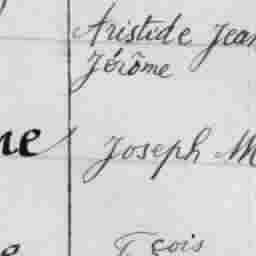 Aristide Jean
Jérôme
ne Joseph M
Fçois